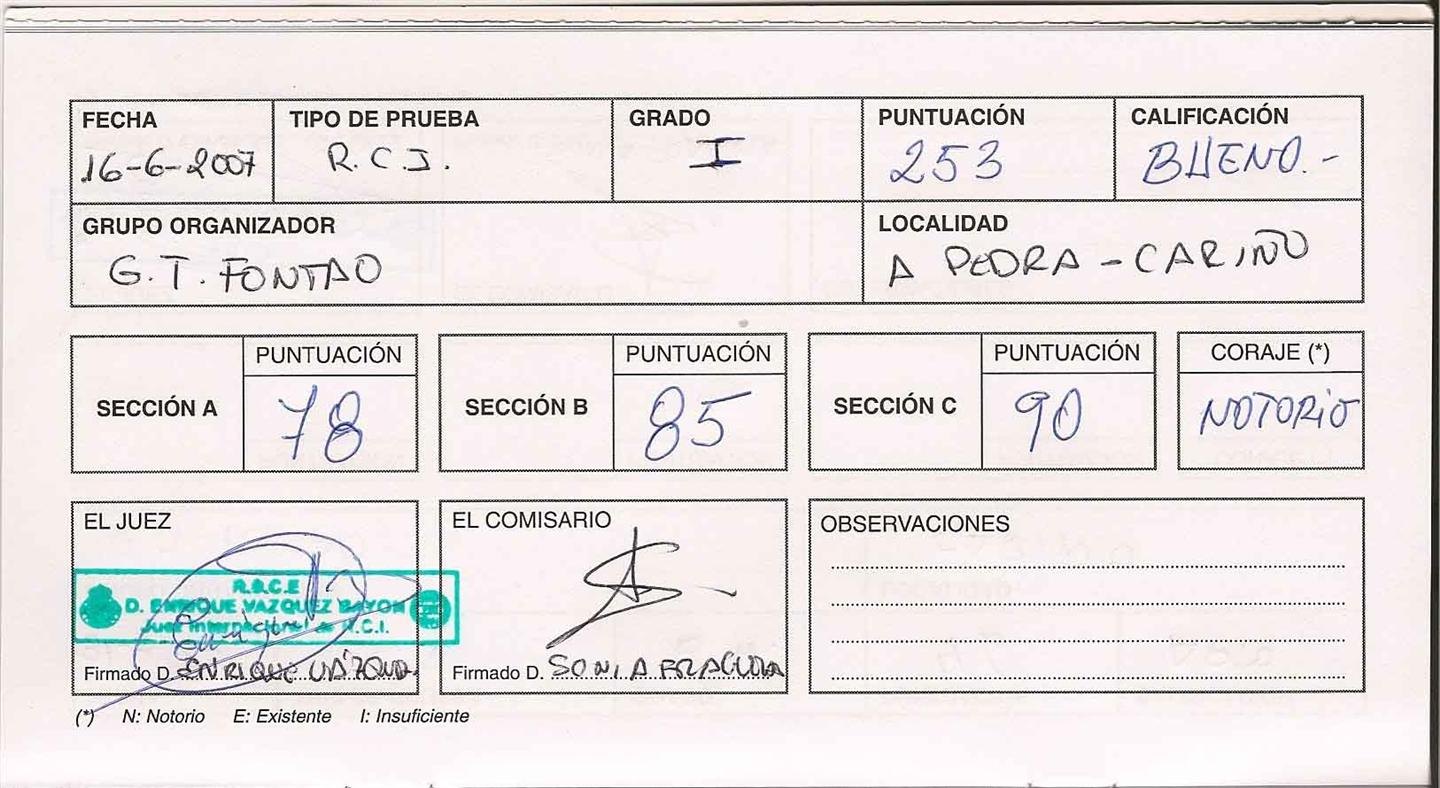 FECHA TIPO DE PRUEBA GRADO PUNTUACIÓN CALIFICACIÓN
16-6-2007 R.C.I. I 253 BUENO.-
GRUPO ORGANIZADOR LOCALIDAD
G.T. FONTAO A PEDRA - CARIÑO
PUNTUACIÓN PUNTUACIÓN PUNTUACIÓN CORAJE (*)
SECCIÓN A 78 SECCIÓN B 85 SECCIÓN C 90 NOTORIO
EL JUEZ EL COMISARIO OBSERVACIONES
R.S.C.E
D. ENRIQUE VAZQUEZ BAYON
Juez Internacional de R.C.I.
Firmado D. ENRIQUE VÁZQUEZ Firmado D. SONIA
(*) N: Notorio E: Existente I: Insuficiente